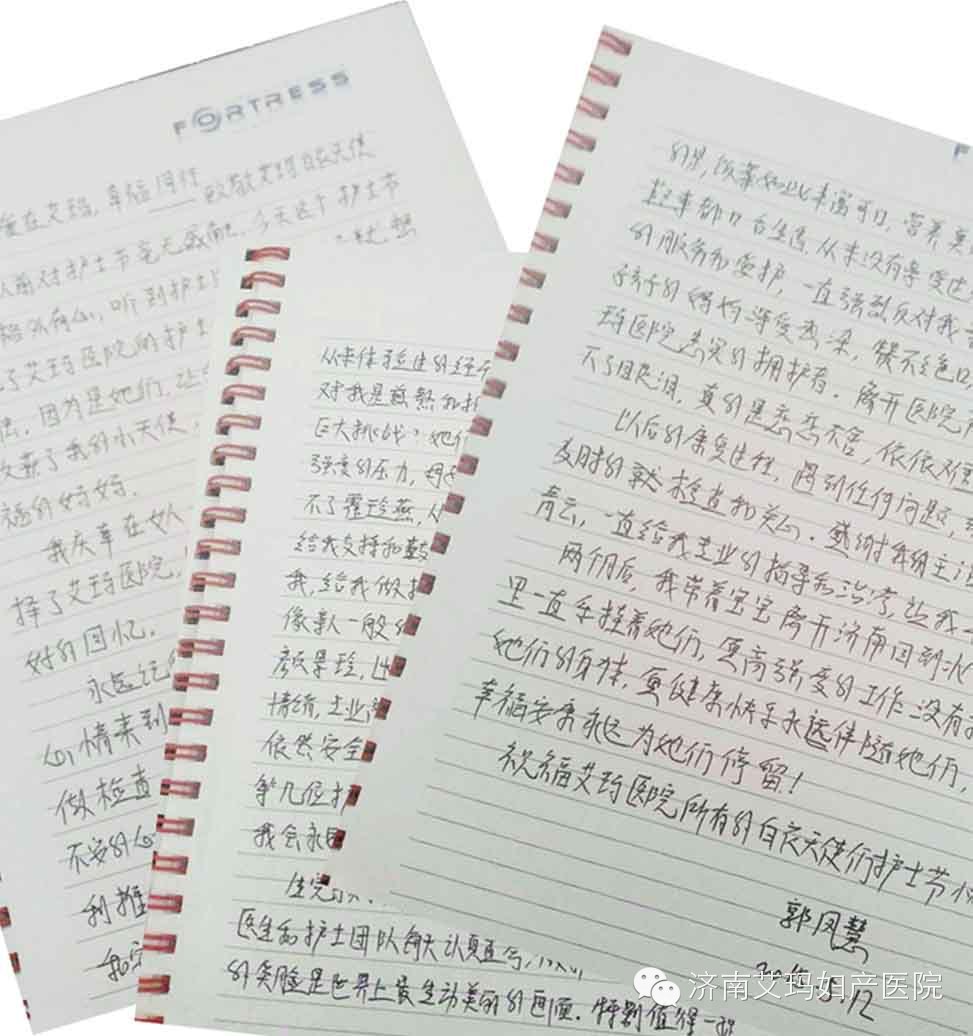 FORTRESS
爱在艾玛，幸福同行
致敬艾玛白衣天使
前对护士节毫无感触，今天这个护士节
听到护士
了艾玛医院的护士
因为是她们，让
我的小天使，
福的妈妈。
我庆幸在女人
择了艾玛医院，
好的回忆。
永远记
心情来到
做检查
不安的心
利推
从来体验过的经
对我是煎熬和
巨大挑战，她们
强度的压力，
不了霍珍燕，
给我支持和鼓
我，给我做
像亲人一般的
颜景珍，
情绪，专业
依然安全
等几位护
我会永远
生完
医生和护士团队每天认真查房，
的笑脸是世界上最生动美丽的画面。特别值得一提
的是，饭菜如此丰富可口，营养
起来都口舌生香，从来没有享受过
的服务和爱护，一直强烈反对我
妈妈深受感染，赞不绝口
玛医院忠实的拥护者。离开医院
不了眼泪，真的是恋恋不舍，依依
以后的康复过程，遇到任何问题，
及时的就检查和关心。感谢我的主治
青云，一直给我专业的指导和治疗，让我
两个月后，我带着宝宝离开济南回到北
里一直牵挂着她们，更高强度的工作没有
她们的身体，更健康快乐永远伴随她们，
幸福安康永远为她们停留！
祝福艾玛医院所有的白衣天使们护士节
郭凤慧
5.12
济南艾玛妇产医院